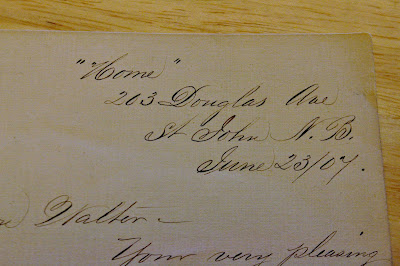 "Home"
203 Douglas Ave
St John N.B.
June 23/07.
Walter –
Your very pleasing